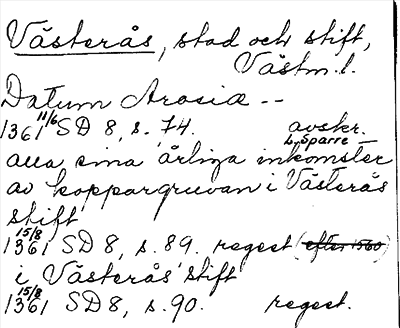 Västerås, stad och stift,
Västm. l.
Datum Arosiæ --
1361 11/6 SD 8, s. 74. avskr.
L. Sparre
alla sina årliga inkomster
av koppargruvan i Västerås
stift
1361 15/8 SD 8, s. 89. regest (efter 1560)
i Västerås stift
1361 15/8 SD 8, s. 90. regest.